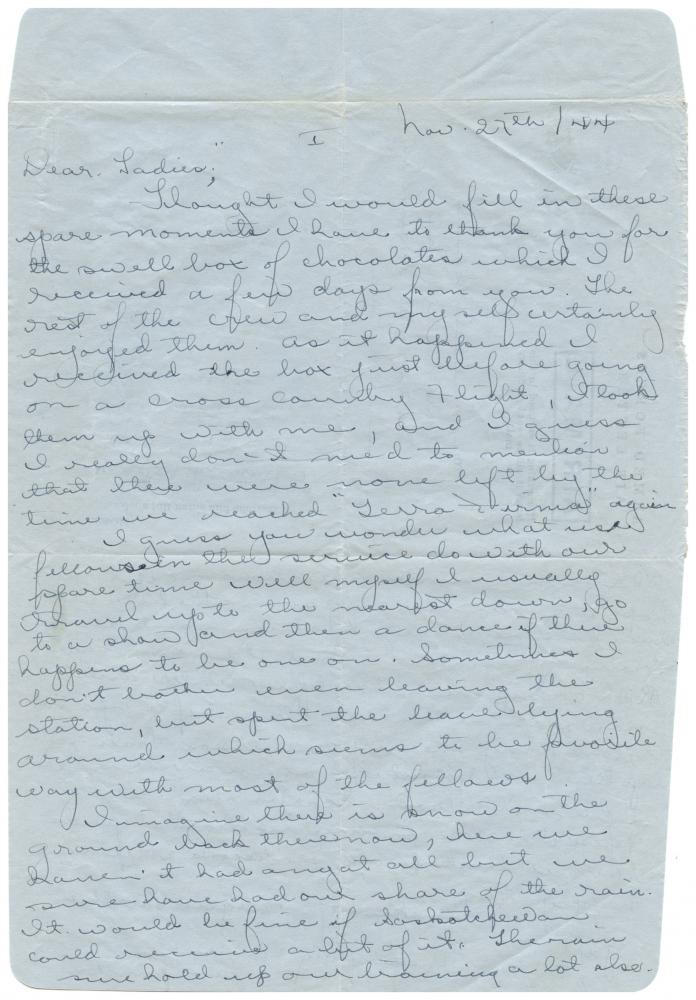 I
Nov. 27th /44
Dear Ladies;
Thought I would fill in these
spare moments I have to thank you for
the swell box of chocolates which I
received a few days from you. The
rest of the crew and myself certainly
enjoyed them. As it happened I
received the box just before going
on a cross country flight, I took
them up with me, and I guess
I really don't need to mention
that there were none left by the
time we reached "Terra Firma" again
I guess you wonder what us
fellows in the service do with our
spare time well myself I usually
travel up to the nearest town, go
to a show and then a dance if there
happens to be one on. Sometimes I
don't bother even leaving the
station, but spent the leave lying
around which seems to be favorite
way with most of the fellows
I immagine there is snow on the
ground back there now, here we
haven't had any at all but we
sure have had our share of the rain.
It would be fine if Saskatchewan
could receive a bit of it. The rain
sure hold up our training a lot also.